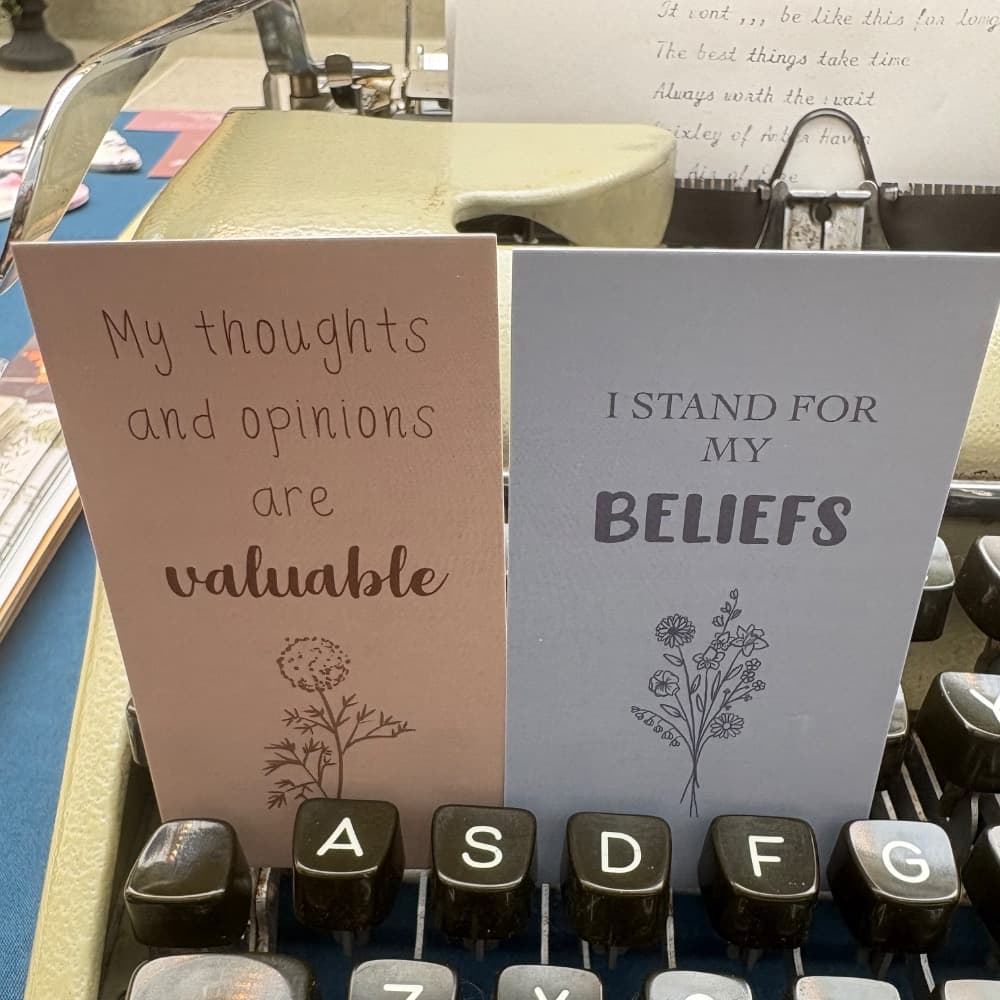 It wont ,,, be like this for long
The best things take time
Always worth the wait
of
Air of
My thoughts
and opinions
are
valuable
I STAND FOR
MY
BELIEFS
A S D F G
Y
Z X C